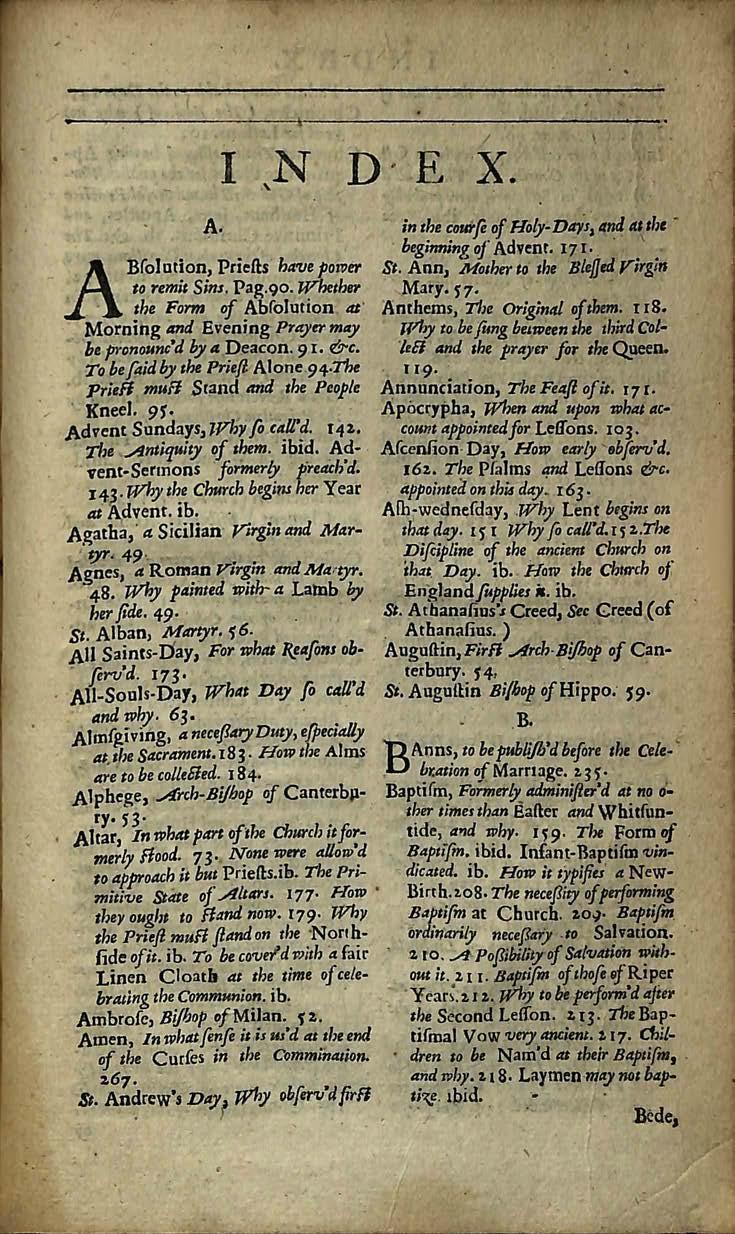 INDEX.
A.
ABſolution, Prieſts have power
to remit Sins. Pag. 90. Whether
the Form of Abſolution at
Morning and Evening Prayer may
be pronounc'd by a Deacon. 91. &c.
To be ſaid by the Prieſt Alone 94. The
Prieſt muſt Stand and the People
Kneel. 95.
Advent Sundays, Why ſo call'd. 142.
The Antiquity of them. ibid. Ad-
vent-Sermons formerly preach'd.
143. Why the Church begins her Year
at Advent. ib.
Agatha, a Sicilian Virgin and Mar-
tyr. 49.
Agnes, a Roman Virgin and Martyr.
48. Why painted with a Lamb by
her ſide. 49.
St. Alban, Martyr. 56.
All Saints-Day, For what Reaſons ob-
ſerv'd. 173.
All-Souls-Day, What Day ſo call'd
and why. 63.
Almſgiving, a neceſſary Duty, eſpecially
at the Sacrament. 183. How the Alms
are to be collected. 184.
Alphege, Arch-Biſhop of Canterbu-
ry. 53.
Altar, In what part of the Church it for-
merly ſtood. 73. None were allow'd
to approach it but Prieſts. ib. The Pri-
mitive State of Altars. 177. How
they ought to ſtand now. 179. Why
the Prieſt muſt ſtand on the North-
ſide of it. ib. To be cover'd with a fair
Linen Cloath at the time of cele-
brating the Communion. ib.
Ambroſe, Biſhop of Milan. 52.
Amen, In what ſenſe it is us'd at the end
of the Curſes in the Commination.
267.
St. Andrew's Day, Why obſerv'd firſt
in the courſe of Holy-Days, and at the
beginning of Advent. 171.
St. Ann, Mother to the Bleſſed Virgin
Mary. 57.
Anthems, The Original of them. 118.
Why to be ſung between the third Col-
lect and the prayer for the Queen.
119.
Annunciation, The Feaſt of it. 171.
Apocrypha, When and upon what ac-
count appointed for Leſſons. 103.
Aſcenſion Day, How early obſerv'd.
162. The Pſalms and Leſſons &c.
appointed on this day. 163.
Aſh-wedneſday, Why Lent begins on
that day. 151 Why ſo call'd. 152. The
Diſcipline of the ancient Church on
that Day. ib. How the Church of
England ſupplies it. ib.
St. Athanaſius's Creed, See Creed (of
Athanaſius.)
Auguſtin, Firſt Arch-Biſhop of Can-
terbury. 54.
St. Auguſtin Biſhop of Hippo. 59.
B.
BAnns, to be publiſh'd before the Cele-
bration of Marriage. 235.
Baptiſm, Formerly adminiſter'd at no o-
ther times than Eaſter and Whitſun-
tide, and why. 159. The Form of
Baptiſm. ibid. Infant-Baptiſm vin-
dicated. ib. How it typifies a New-
Birth. 208. The neceſſity of performing
Baptiſm at Church. 209. Baptiſm
ordinarily neceſſary to Salvation.
210. A Poſſibility of Salvation with-
out it. 211. Baptiſm of thoſe of Riper
Years. 212. Why to be perform'd after
the Second Leſſon. 213. The Bap-
tiſmal Vow very ancient. 217. Chil-
dren to be Nam'd at their Baptiſm,
and why. 218. Laymen may not bap-
tize. ibid.
Bede,